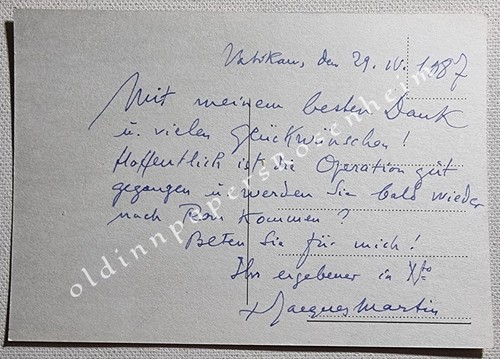 Vatikan, den 29. IV. 1987
Mit meinem besten Dank
u. vielen Glückwünschen!
Hoffentlich ist die Operation gut
gegangen u. werden Sie bald wieder
nach Rom kommen?
Beten Sie für mich!
Ihr ergebener in Xto
+ Jacques Martin
oldinnpapersrosenheim